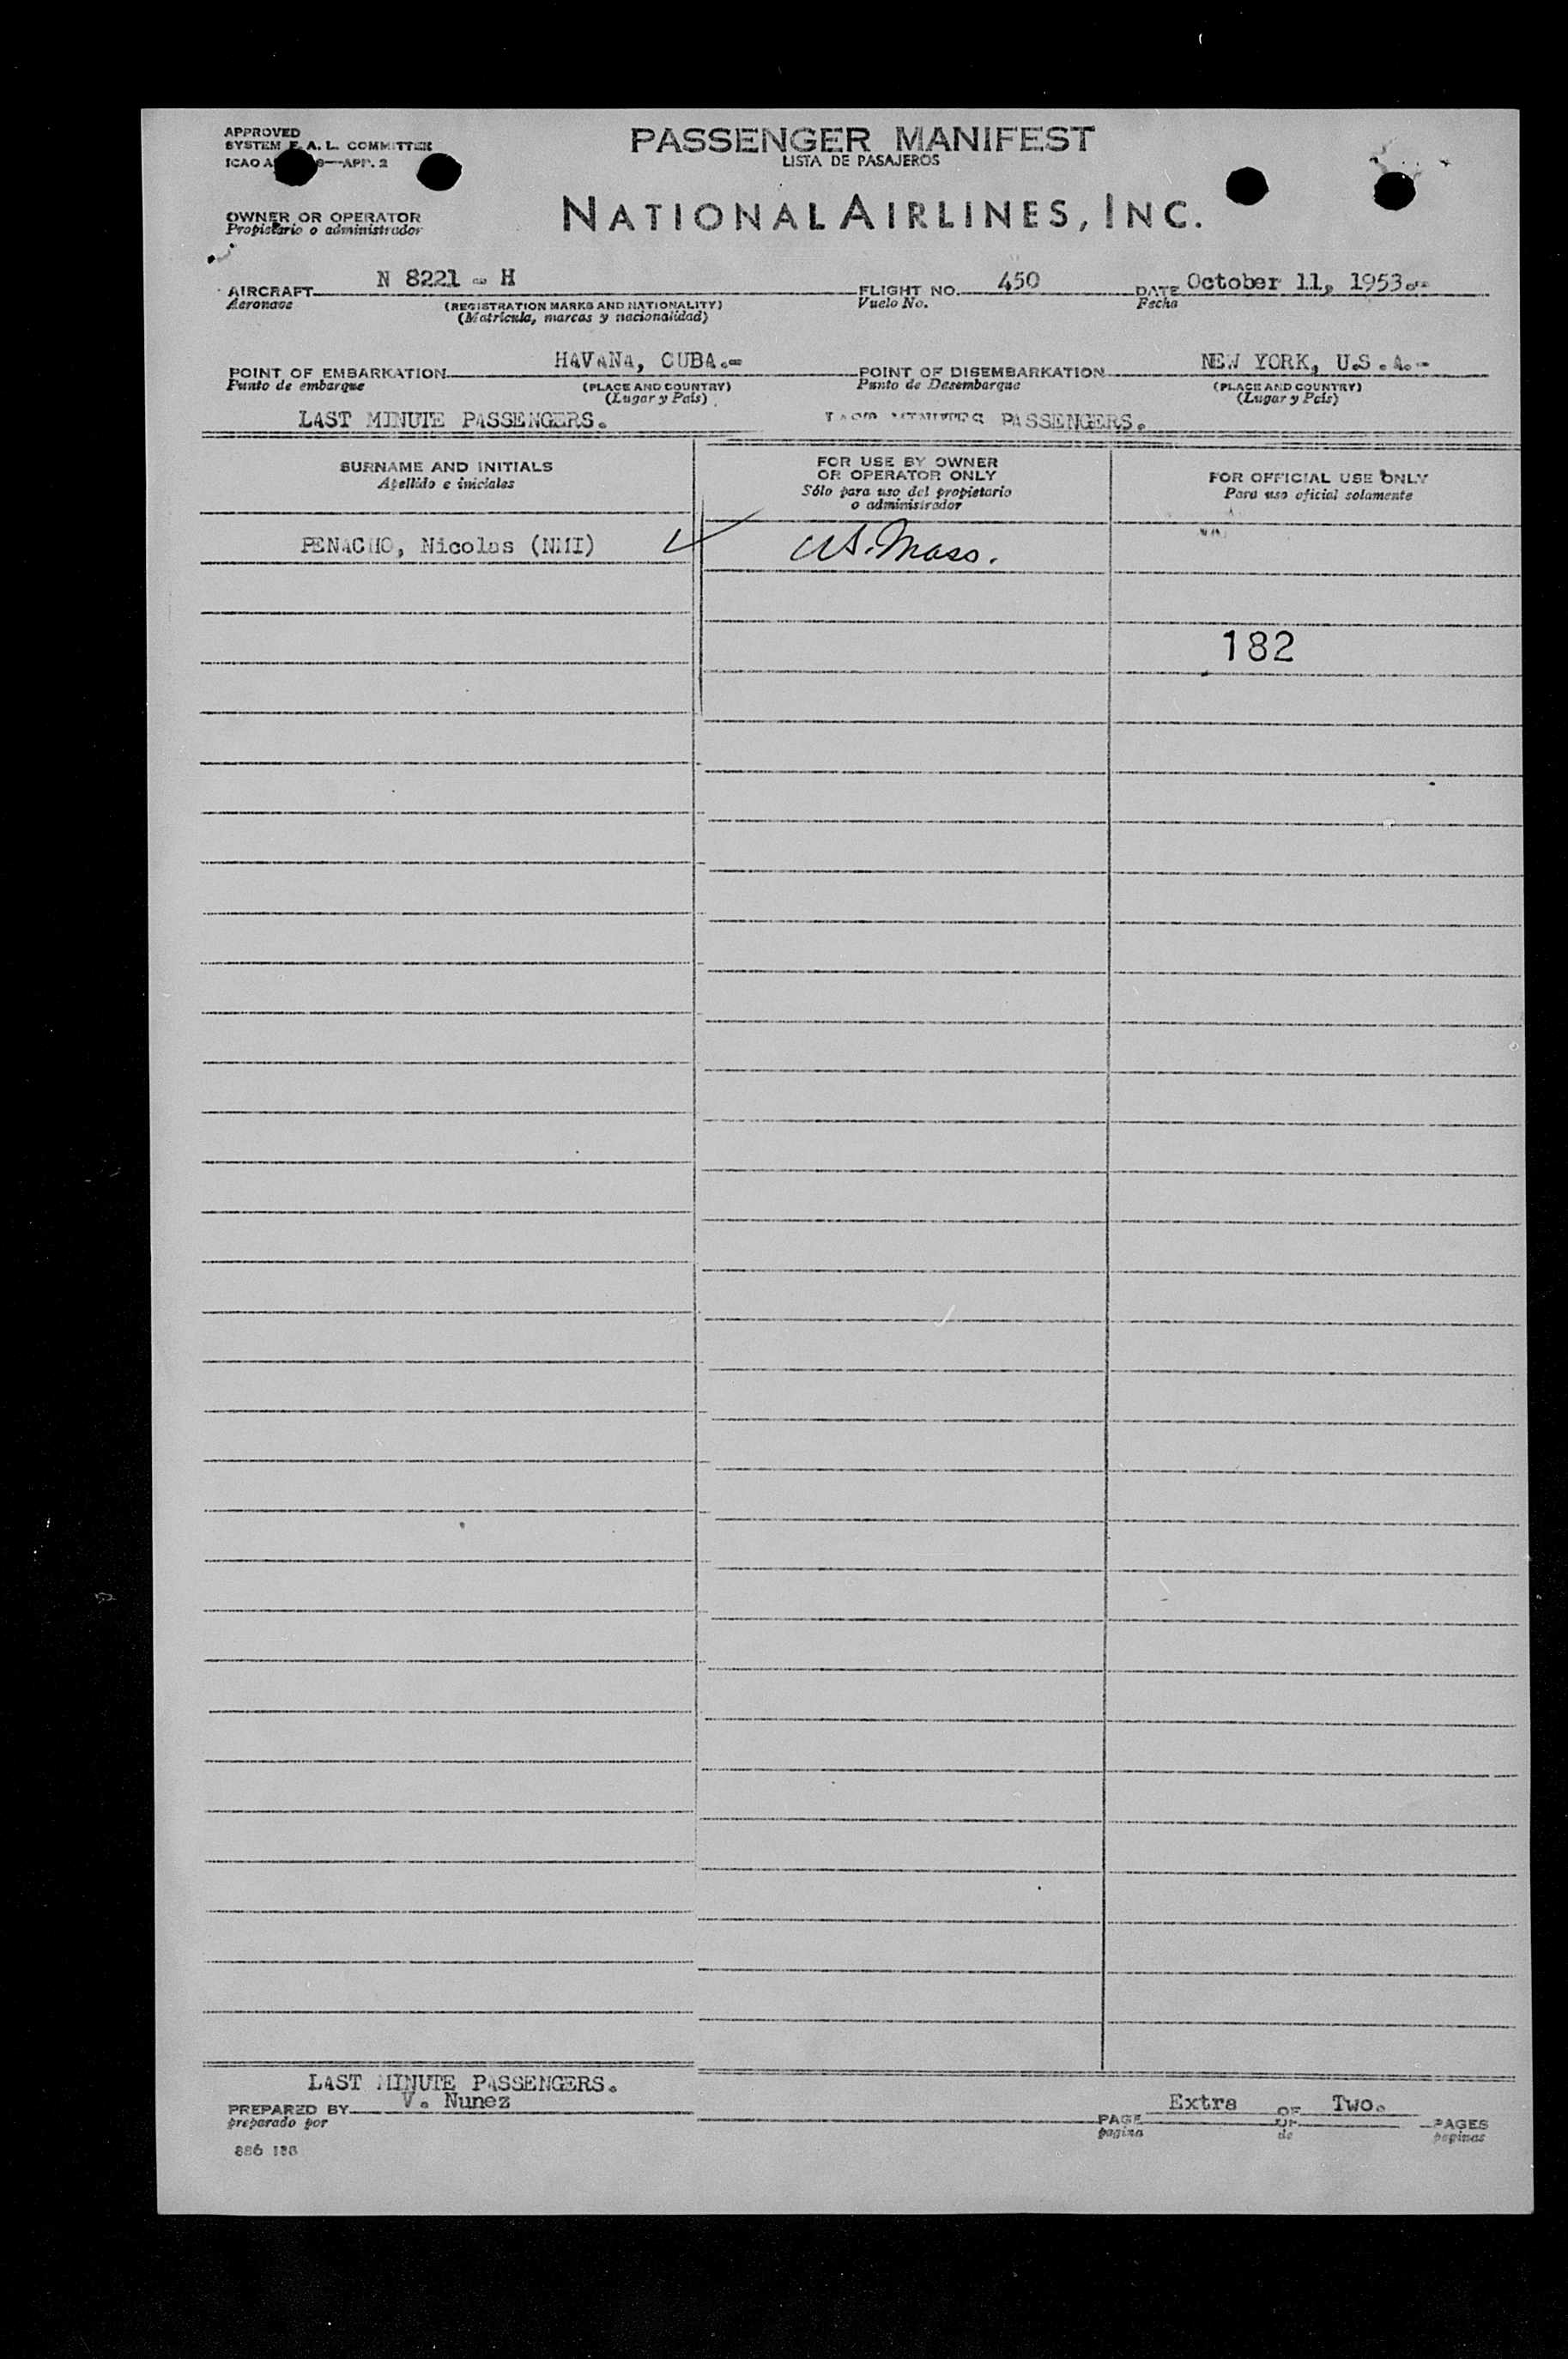 APPROVED
SYSTEM F. A. L. COMMITTEE
ICAO 9—APP. 2
PASSENGER MANIFEST
LISTA DE PASAJEROS
OWNER OR OPERATOR
Propietario o administrador
NATIONAL AIRLINES, INC.
AIRCRAFT N 8221 - H FLIGHT NO. 450 DATE October 11, 1953.-
Aeronave (REGISTRATION MARKS AND NATIONALITY) Vuelo No. Fecha
(Matrícula, marcas y nacionalidad)
POINT OF EMBARKATION HAVANA, CUBA.- POINT OF DISEMBARKATION NEW YORK, U.S.A.-
Punto de embarque (PLACE AND COUNTRY) Punto de Desembarque (PLACE AND COUNTRY)
(Lugar y País) (Lugar y País)
LAST MINUTE PASSENGERS. LAST MINUTES PASSENGERS.
SURNAME AND INITIALS
Apellido e iniciales
FOR USE BY OWNER
OR OPERATOR ONLY
Sólo para uso del propietario
o administrador
FOR OFFICIAL USE ONLY
Para uso oficial solamente
PENACHO, Nicolas (NMI) US. Mass.
182
LAST MINUTE PASSENGERS.
PREPARED BY V. Nunez
preparado por
PAGE Extra OF Two. PAGES
pagina de paginas